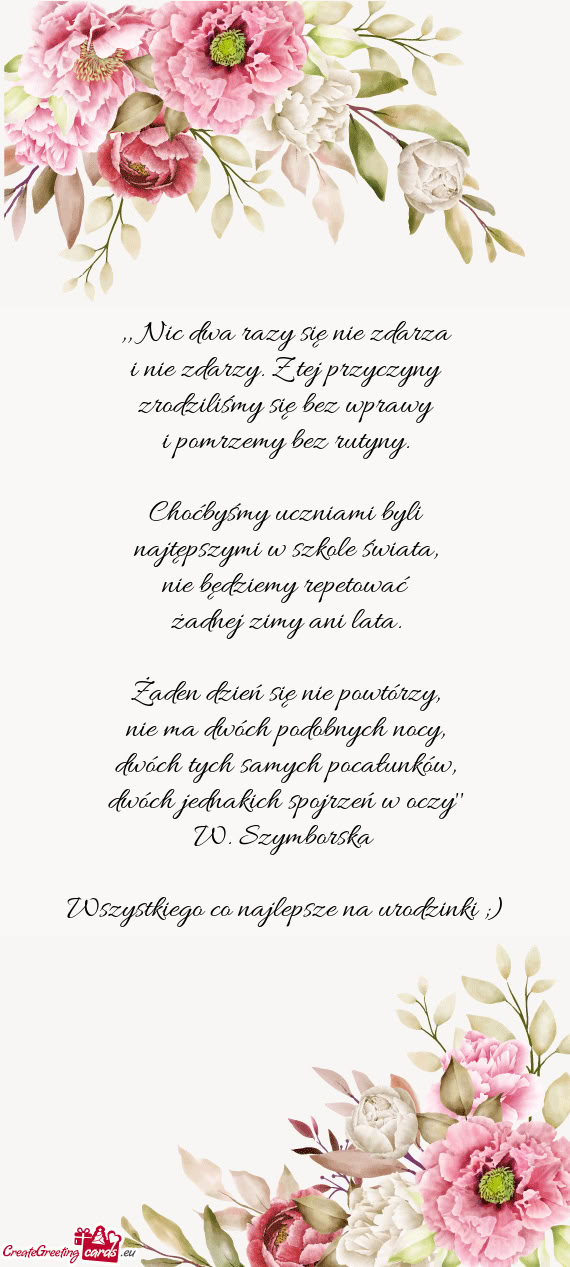 ,,Nic dwa razy się nie zdarza
i nie zdarzy. Z tej przyczyny
zrodziliśmy się bez wprawy
i pomrzemy bez rutyny.
Choćbyśmy uczniami byli
najtępszymi w szkole świata,
nie będziemy repetować
żadnej zimy ani lata.
Żaden dzień się nie powtórzy,
nie ma dwóch podobnych nocy,
dwóch tych samych pocałunków,
dwóch jednakich spojrzeń w oczy"
W. Szymborska
Wszystkiego co najlepsze na urodzinki ;)
CreateGreeting cards .eu